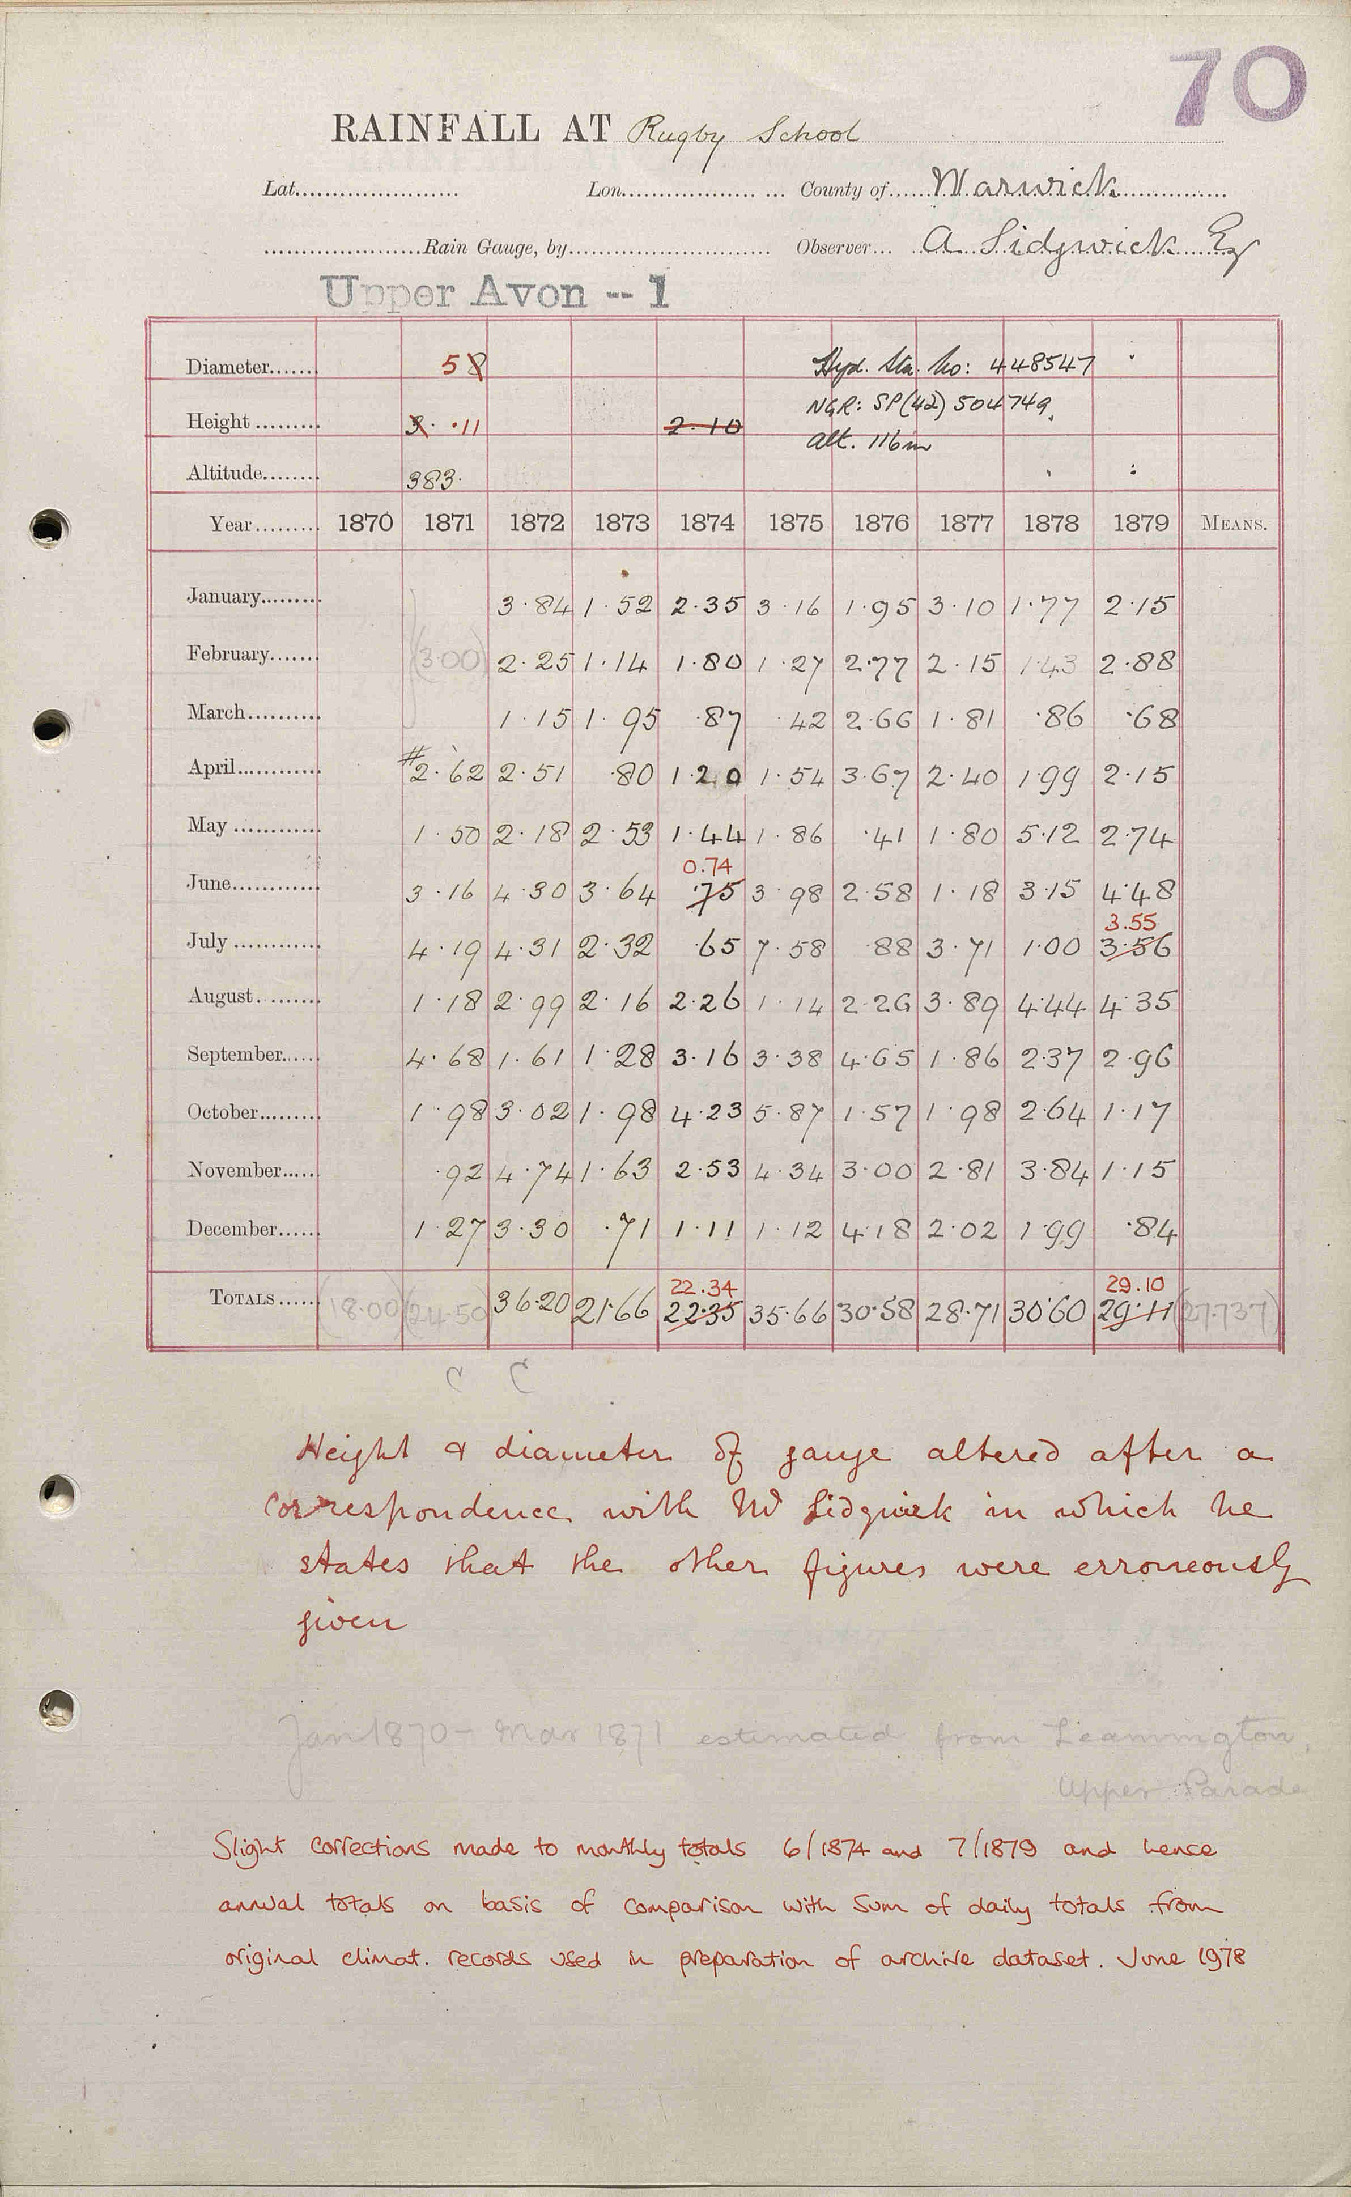 70
RAINFALL AT Rugby School
Lat. Lon. County of Warwick
Rain Gauge, by Observer A Sidgwick Esq
Upper Avon -- 1
Diameter 5 8 Hyd. Sta. No: 448547
Height 3. .11 2.10 NGR: SP(42) 504749
Alt. 116m
Altitude 383.
Year 1870 1871 1872 1873 1874 1875 1876 1877 1878 1879 MEANS.
January 3.84 1.52 2.35 3.16 1.95 3.10 1.77 2.15
February (3.00) 2.25 1.14 1.80 1.27 2.77 2.15 1.43 2.88
March 1.15 1.95 .87 .42 2.66 1.81 .86 .68
April #2.62 2.51 .80 1.20 1.54 3.67 2.40 1.99 2.15
May 1.50 2.18 2.53 1.44 1.86 .41 1.80 5.12 2.74
0.74
June 3.16 4.30 3.64 .75 3.98 2.58 1.18 3.15 4.48
3.55
July 4.19 4.31 2.32 .65 7.58 .88 3.71 1.00 3.56
August 1.18 2.99 2.16 2.26 1.14 2.26 3.89 4.44 4.35
September 4.68 1.61 1.28 3.16 3.38 4.65 1.86 2.37 2.96
October 1.98 3.02 1.98 4.23 5.87 1.57 1.98 2.64 1.17
November .92 4.74 1.63 2.53 4.34 3.00 2.81 3.84 1.15
December 1.27 3.30 .71 1.11 1.12 4.18 2.02 1.99 .84
22.34 29.10
TOTALS (18.00) (24.50) 36.20 21.66 22.35 35.66 30.58 28.71 30.60 29.11 (27.737)
C C
Height & diameter of gauge altered after a
correspondence with Mr Sidgwick in which he
states that the other figures were erroneously
given
Jan 1870 - Mar 1871 estimated from Leamington,
Upper Parade
Slight corrections made to monthly totals 6/1874 and 7/1879 and hence
annual totals on basis of comparison with sum of daily totals from
original climat. records used in preparation of archive dataset. June 1978